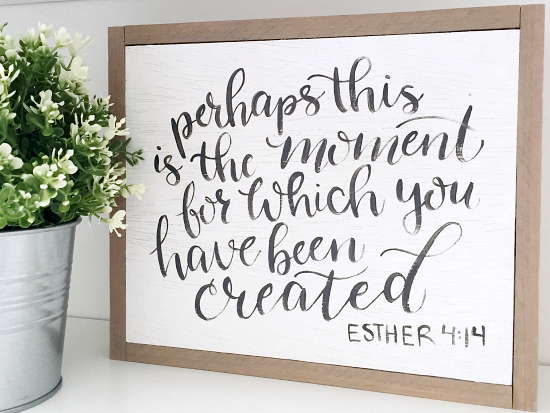 perhaps this
is the moment
for which you
have been
created
ESTHER 4:14